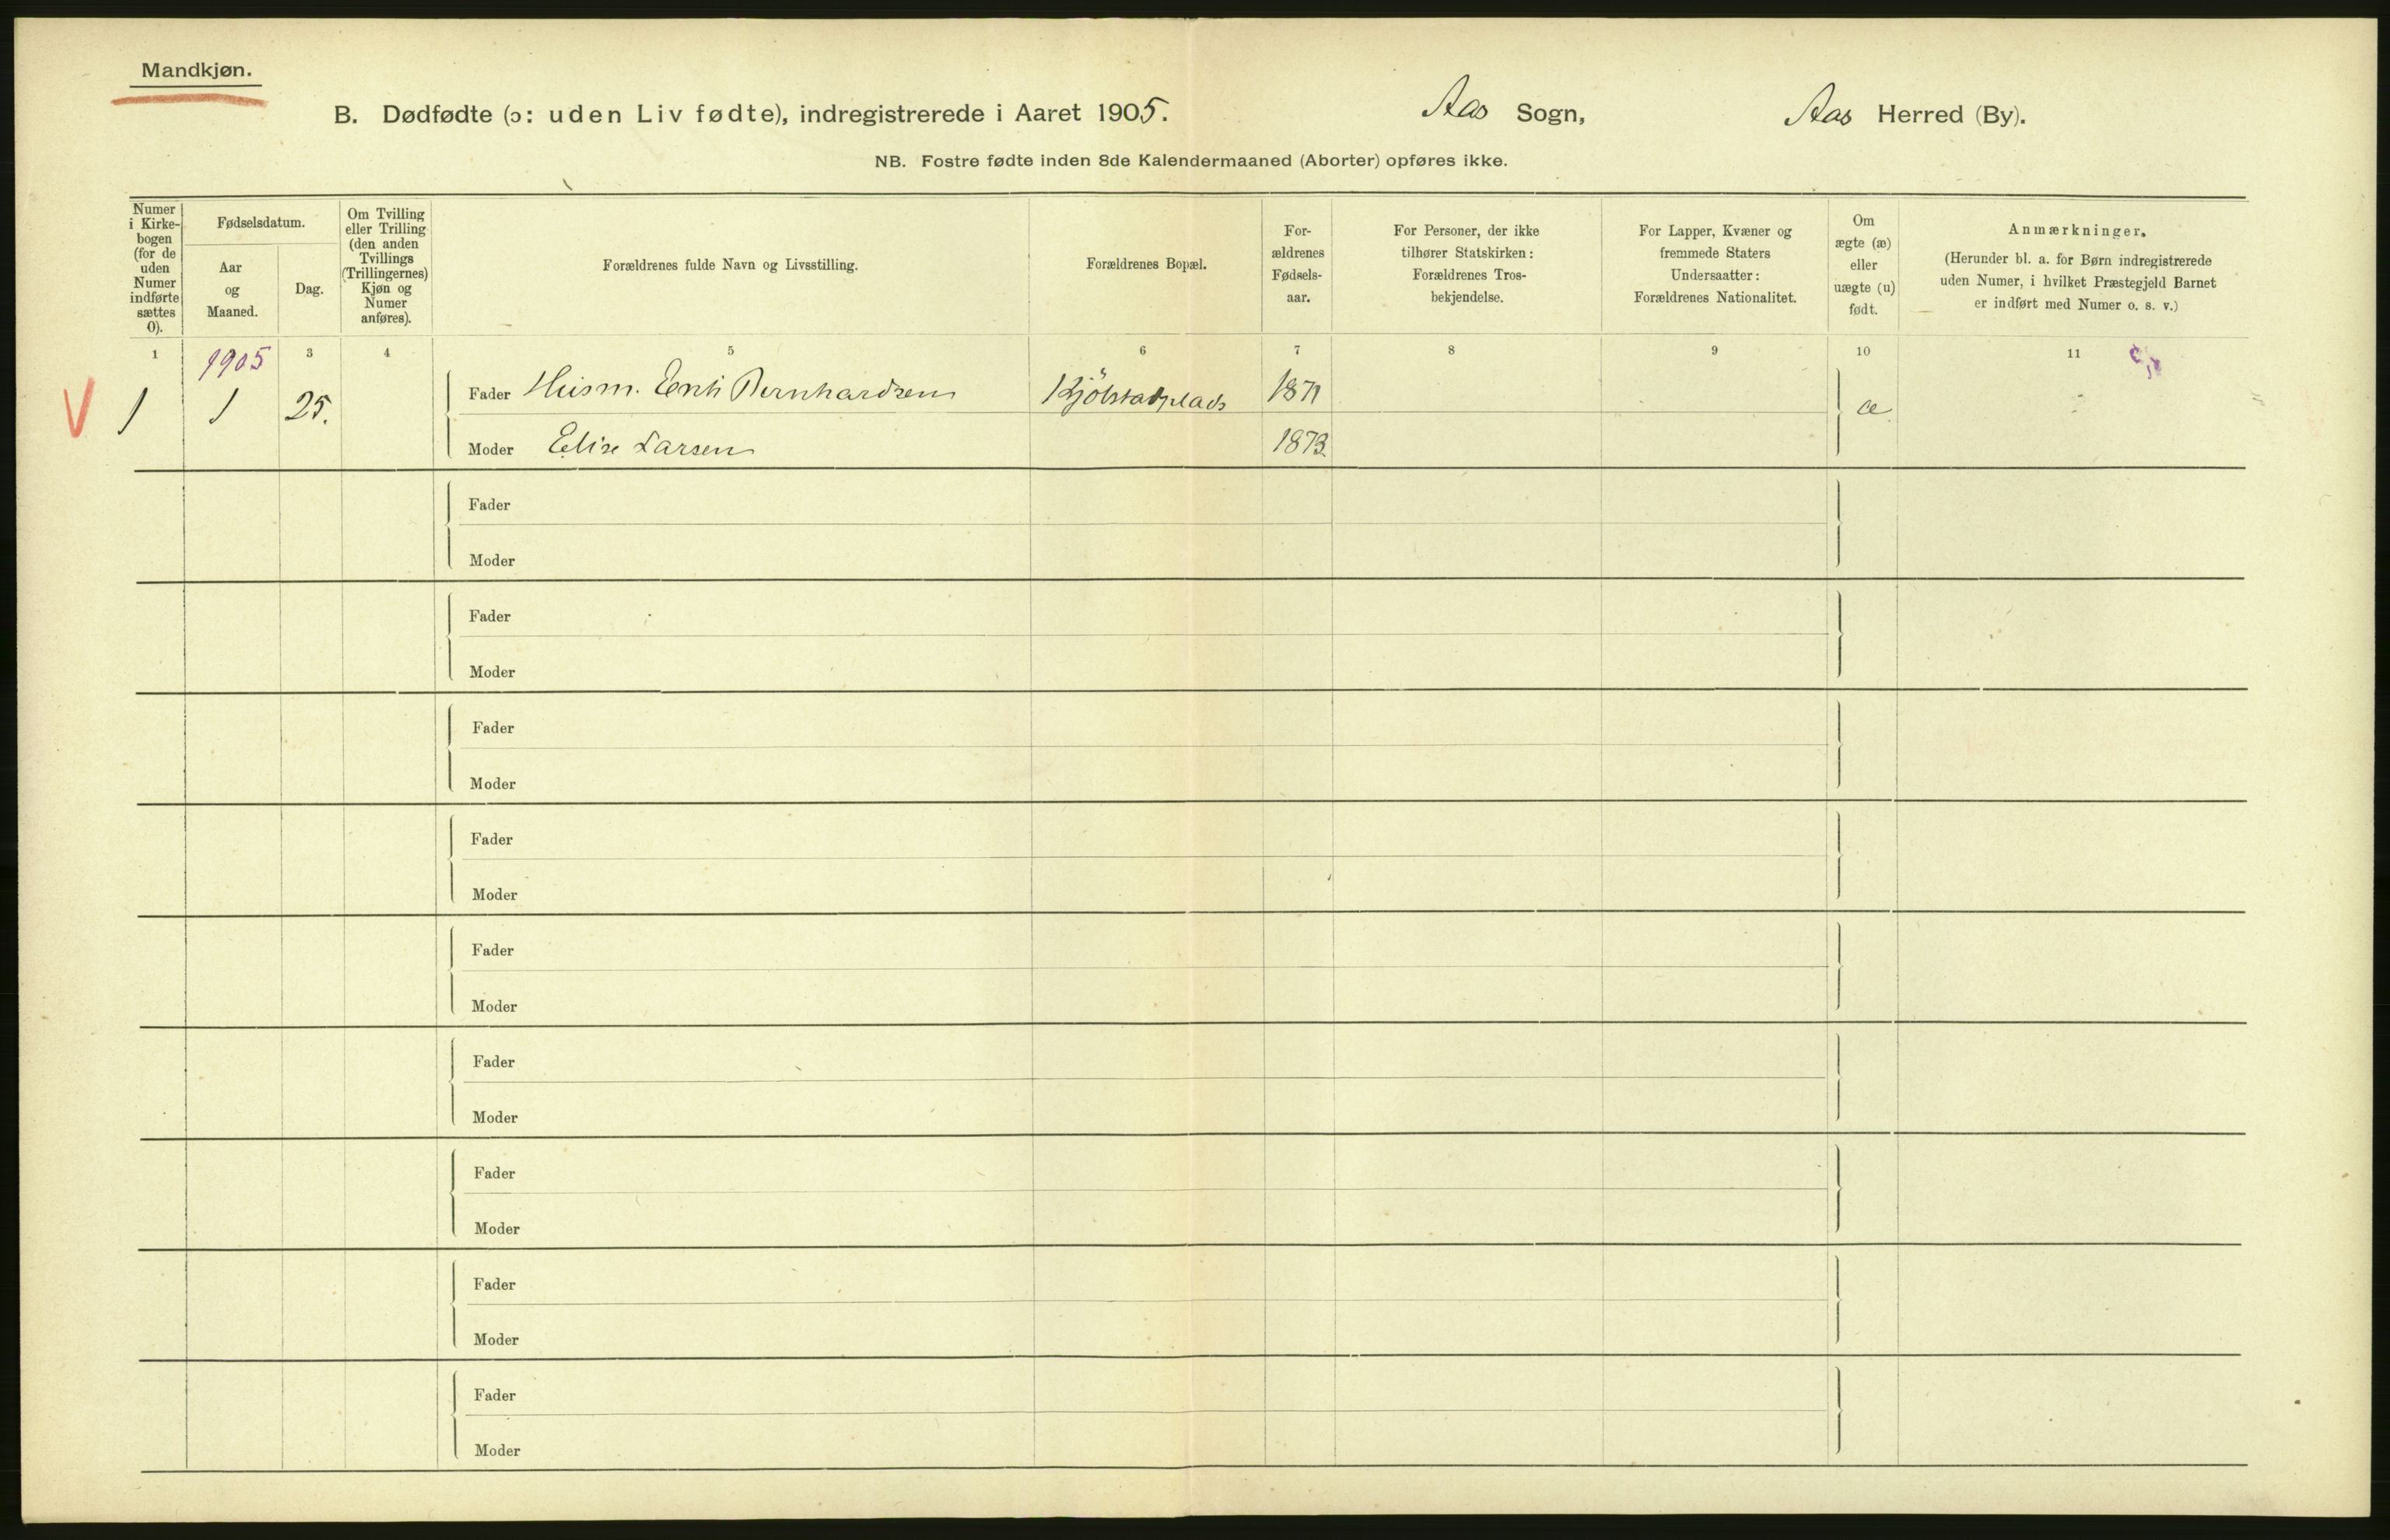 Mandkjøn.
B. Dødfødte (ɔ: uden Liv fødte), indregistrerede i Aaret 1905. Aas Sogn, Aas Herred (By).
NB. Fostre fødte inden 8de Kalendermaaned (Aborter) opføres ikke.
Numer
i Kirke-
bogen
(for de
uden
Numer
indførte
sættes
0).
Fødselsdatum.
Aar
og
Maaned.
Dag.
Om Tvilling
eller Trilling
(den anden
Tvillings
(Trillingernes)
Kjøn og
Numer
anføres).
Forældrenes fulde Navn og Livsstilling.
Forældrenes Bopæl.
For-
ældrenes
Fødsels-
aar.
For Personer, der ikke
tilhører Statskirken:
Forældrenes Tros-
bekjendelse.
For Lapper, Kvæner og
fremmede Staters
Undersaatter:
Forældrenes Nationalitet.
Om
ægte (æ)
eller
uægte (u)
født.
Anmærkninger.
(Herunder bl. a. for Børn indregistrerede
uden Numer, i hvilket Præstegjeld Barnet
er indført med Numer o. s. v.)
1 1905 3 4 5 6 7 8 9 10 11
V 1 1 25. Fader Husm. Bernhardsen Kjölstadplads 1871 æ
Moder Elise Larsen 1873.
Fader
Moder
Fader
Moder
Fader
Moder
Fader
Moder
Fader
Moder
Fader
Moder
Fader
Moder
Fader
Moder
Fader
Moder